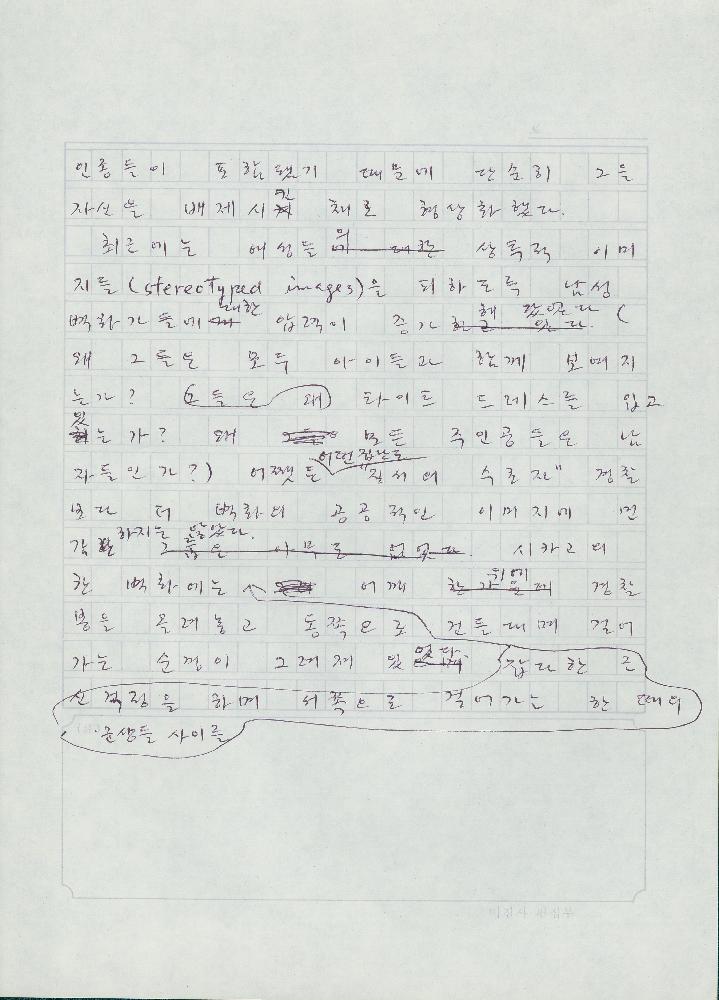 인종들이 포함됐기 때문에 단순히 그들
자신을 배제시킨 채로 형상화했다.
최근에는 여성들의 상투적 이미
지들(stereotyped images)을 피하도록 남성
벽화가들에 대한 압력이 증가해 왔었다 (
왜 그들은 모두 아이들과 함께 보여지
는가? 그들은 왜 타이트 드레스를 입고
있는가? 왜 모든 주인공들은 남
자들인가?) 어쨌든 어떤 집단도 "질서의 수호자" 경찰
보다 더 벽화의 공공적인 이미지에 민
감하지는 않았다. 시카고의
한 벽화에는 어깨 위에 경찰
봉을 올려놓고 동쪽으로 건들대며 걸어
가는 순경이 그려져 있었다. 잡다한 근
신걱정을 하며 서쪽으로 걸어가는 한 떼의
군생들 사이를